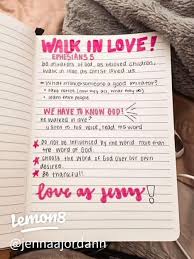 WALK IN LOVE!
EPHESIANS 5
be imitators of God, as beloved children,
walk in love as Christ loved us.
What makes someone a good imitator?
learn from people
WE HAVE TO KNOW GOD!
he walked in love?
listen to his voice, read his word
Do not be influenced by the world more than
the word of God.
Choose the word of God over our own
desires.
Be thankful!
love as Jesus!
Lemon8
@jennaajordann